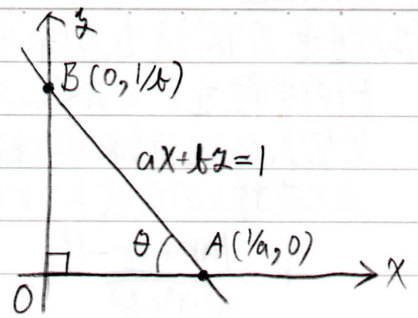 y
B(0,1/b)
ax+by=1
θ
A(1/a,0)
x
O